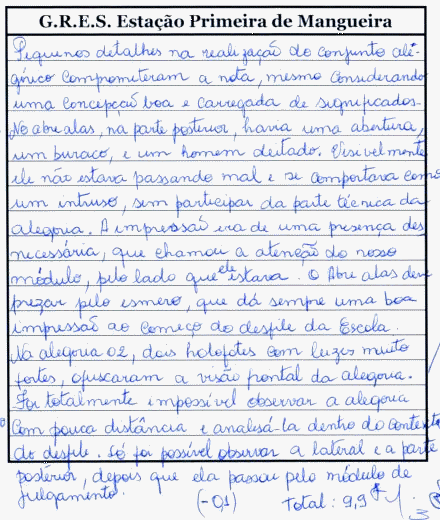 G.R.E.S. Estação Primeira de Mangueira
Pequenos detalhes na realização do conjunto ale-
górico comprometeram a nota, mesmo considerando
uma concepção boa e carregada de significados.
No abre alas, na parte posterior, havia uma abertura,
um buraco, e um homem deitado. Visivelmente
ele não estava passando mal e se comportava como
um intruso, sem participar da parte técnica da
alegoria. A impressão era de uma presença des
necessária, que chamou a atenção do nosso
módulo, pelo lado que ele estava. O Abre alas deve
prezar pelo esmero, que dá sempre uma boa
impressão ao começo do desfile da Escola.
Na alegoria 02, dois holofotes com luzes muito
fortes, ofuscaram a visão frontal da alegoria.
Foi totalmente impossível observar a alegoria
com pouca distância e analisá-la dentro do contexto
do desfile. Só foi possível observar a lateral e a parte
posterior, depois que ela passou pelo módulo de
julgamento. (-0,1) Total: 9,9